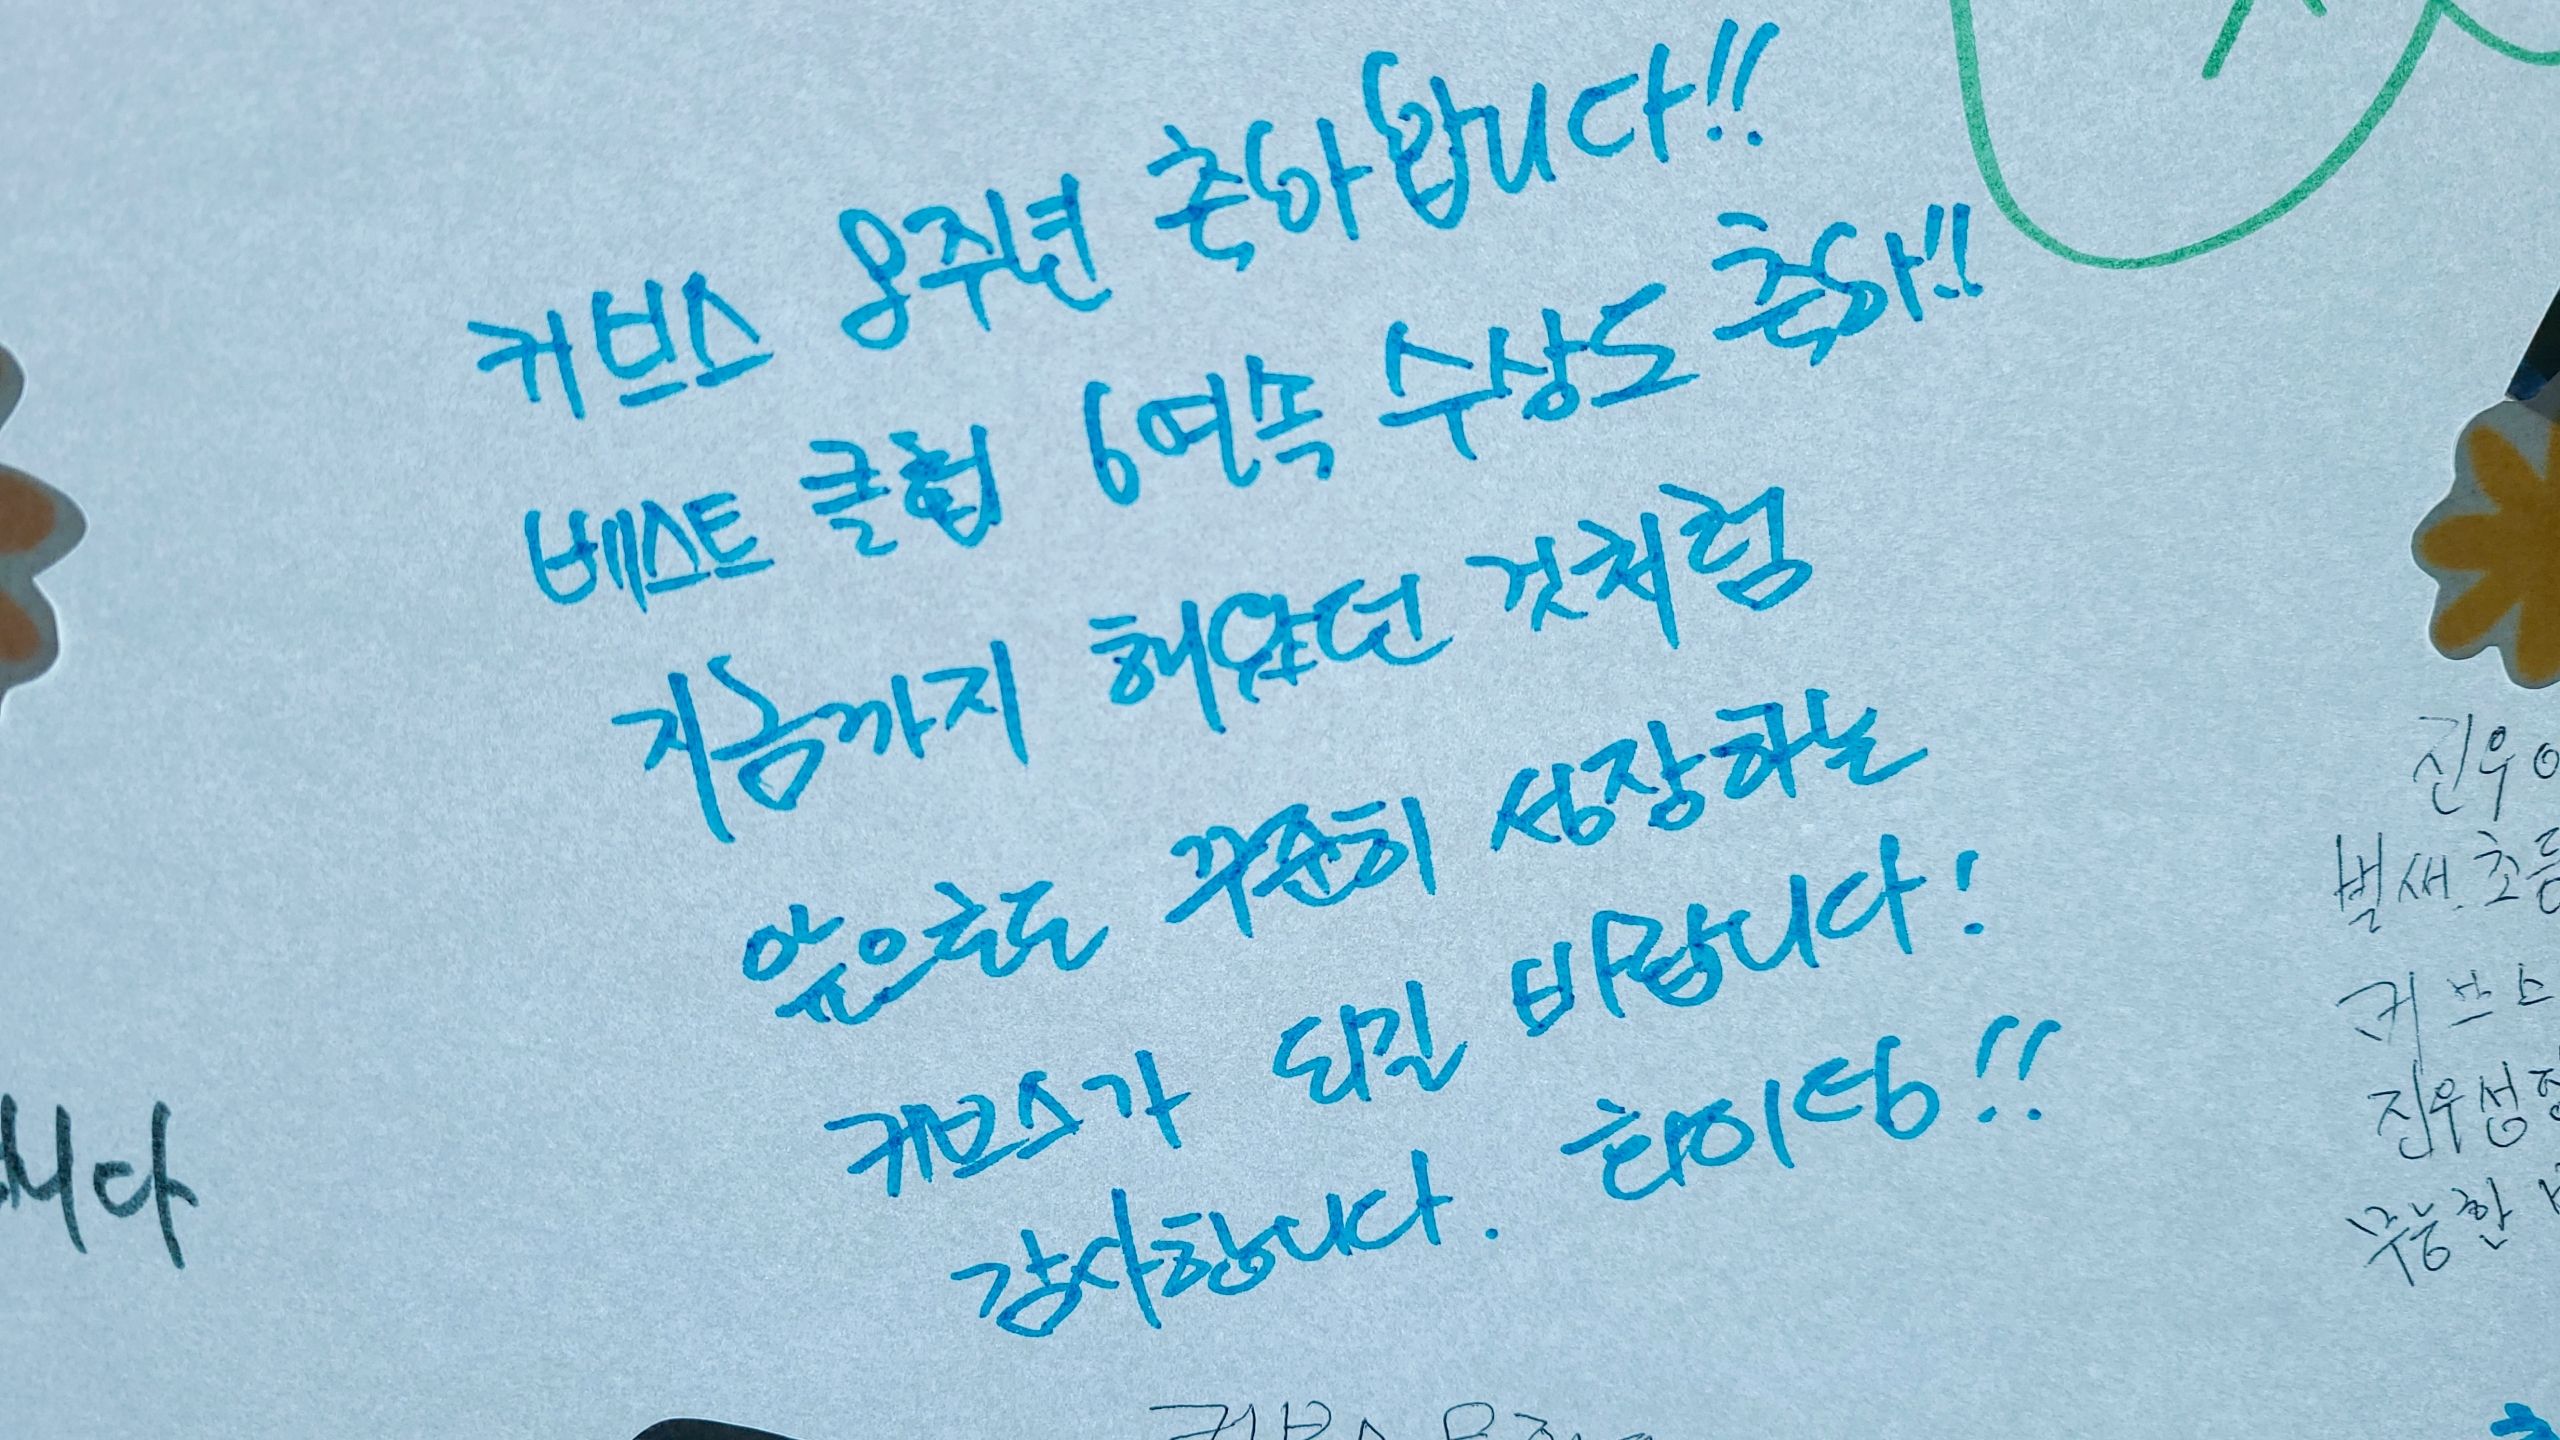 커브스 8주년 축하합니다!!
베스트 클럽 6연속 수상도 축하!!
지금까지 해왔던 것처럼
앞으로도 꾸준히 성장하는
커브스가 되길 바랍니다!
감사합니다. 화이팅!!
니다
진우
벌새. 초
커브스
진우성
무능한